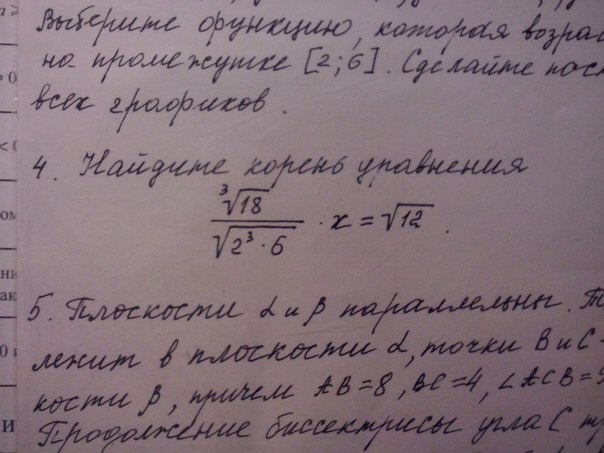 Выберите функцию, которая
на промежутке [2;6]. Сделайте
всех графиков.
4. Найдите корень уравнения
∛18 / √(2³ · 6) · x = √12.
5. Плоскости α и β параллельны.
лежит в плоскости α, точки B и C -
кости β, причем AB=8, BC=4, ∠ACB=
Продолжение биссектрисы угла C